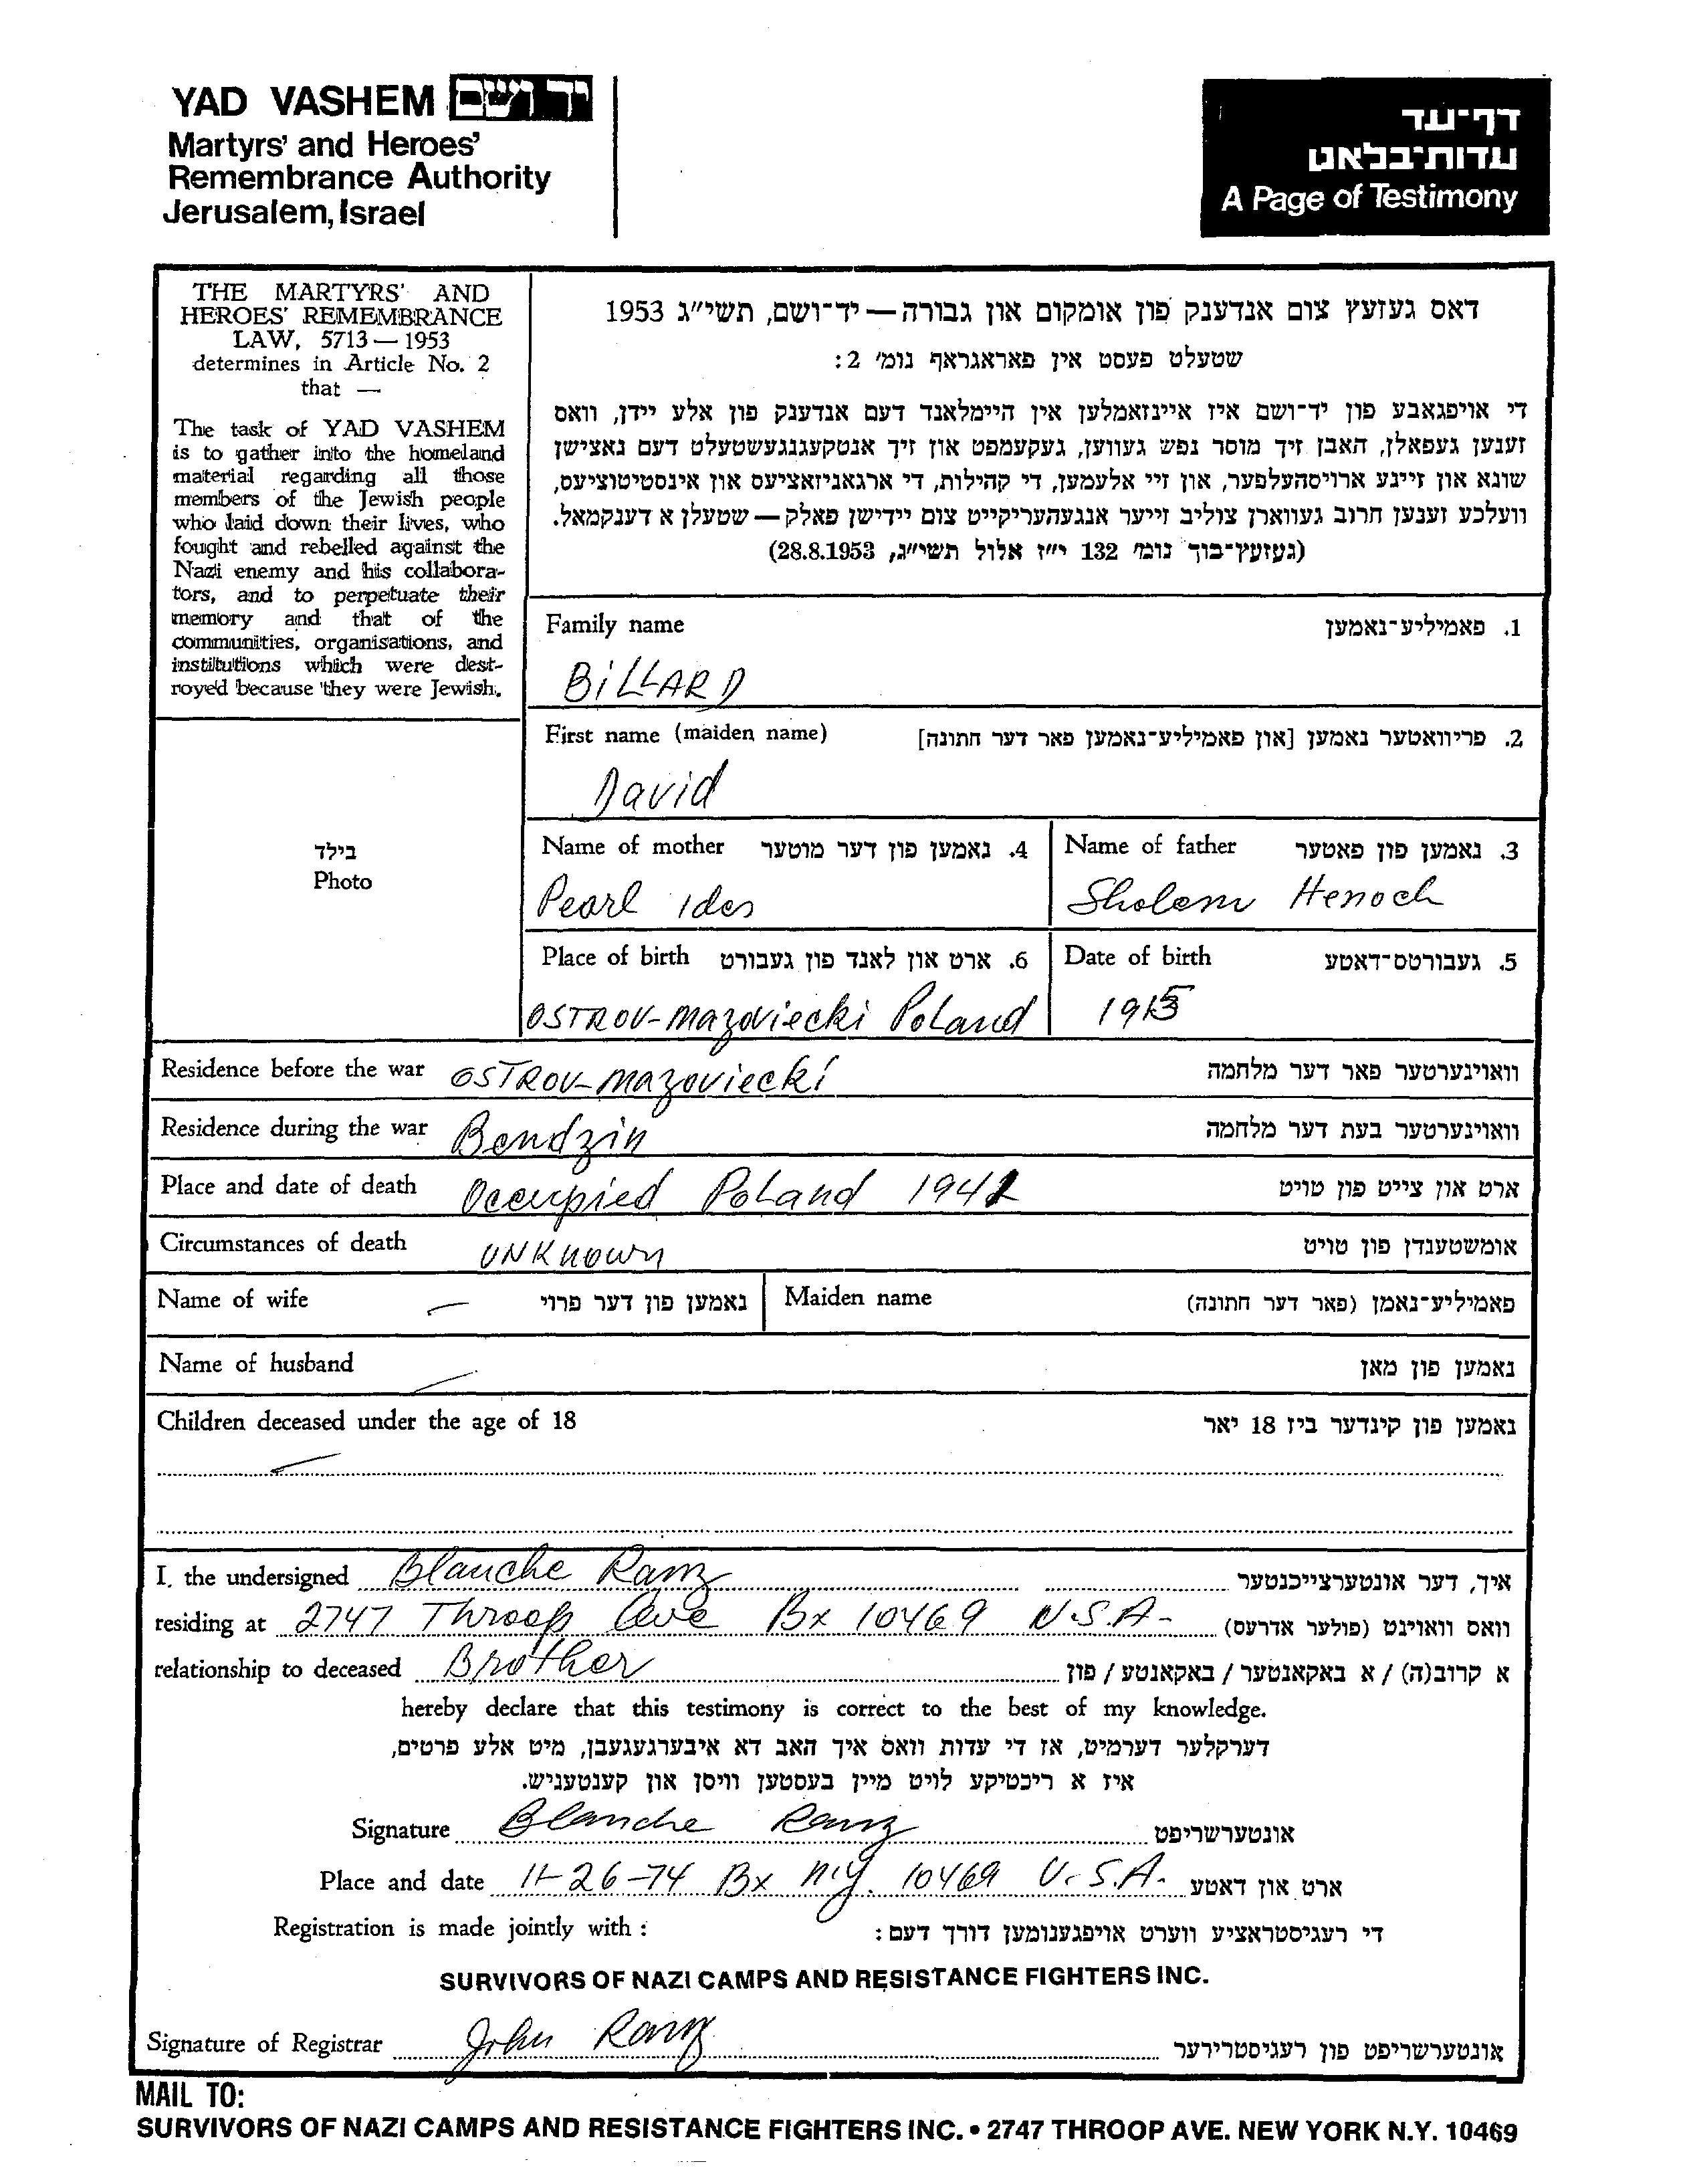 YAD VASHEM יד ושם
Martyrs' and Heroes'
Remembrance Authority
Jerusalem, Israel
דף-עד
עדות-בלאט
A Page of Testimony
THE MARTYRS' AND
HEROES' REMEMBRANCE
LAW, 5713 — 1953
determines in Article No. 2
that —
The task of YAD VASHEM
is to gather into the homeland
material regarding all those
members of the Jewish people
who laid down their lives, who
fought and rebelled against the
Nazi enemy and his collabora-
tors, and to perpetuate their
memory and that of the
communities, organisations, and
institutions which were dest-
royed because they were Jewish.
דאס געזעץ צום אנדענק פון אומקום און גבורה — יד-ושם, תשי"ג 1953
שטעלט פעסט אין פאראגראף נומ' 2:
די אויפגאבע פון יד-ושם איז איינזאמלען אין היימלאנד דעם אנדענק פון אלע יידן, וואס
זענען געפאלן, האבן זיך מוסר נפש געווען, געקעמפט און זיך אנטקעגנגעשטעלט דעם נאצישן
שונא און זיינע ארויסהעלפער, און זיי אלעמען, די קהילות, די ארגאניזאציעס און אינסטיטוציעס,
וועלכע זענען חרוב געווארן צוליב זייער אנגעהעריקייט צום יידישן פאלק — שטעלן א דענקמאל.
(געזעץ-בוך נומ' 132 י"ז אלול תשי"ג, 28.8.1953)
Family name 1. פאמיליע-נאמען
BiLLARD
First name (maiden name) 2. פריוואטער נאמען [און פאמיליע-נאמען פאר דער חתונה]
David
Name of mother 4. נאמען פון דער מוטער
Pearl Ides
Name of father 3. נאמען פון פאטער
Sholem Henoch
Place of birth 6. ארט און לאנד פון געבורט
OSTROV-Mazoviecki Poland
Date of birth 5. געבורטס-דאטע
1915
בילד
Photo
Residence before the war OSTROV-Mazoviecki וואוינערטער פאר דער מלחמה
Residence during the war Bendzin וואוינערטער בעת דער מלחמה
Place and date of death Occupied Poland 1942 ארט און צייט פון טויט
Circumstances of death UNKNOWN אומשטענדן פון טויט
Name of wife — נאמען פון דער פרוי Maiden name פאמיליע-נאמן (פאר דער חתונה)
Name of husband — נאמען פון מאן
Children deceased under the age of 18 נאמען פון קינדער ביז 18 יאר
—
I, the undersigned Blanche Ramz איך, דער אונטערצייכנטער
residing at 2747 Throop Ave Bx 10469 U.S.A- וואס וואוינט (פולער אדרעס)
relationship to deceased Brother א קרוב(ה) / א באקאנטער / באקאנטע / פון
hereby declare that this testimony is correct to the best of my knowledge.
דערקלער דערמיט, אז די עדות וואס איך האב דא איבערגעגעבן, מיט אלע פרטים,
איז א ריכטיקע לויט מיין בעסטען וויסן און קענטעניש.
Signature Blanche Ramz אונטערשריפט
Place and date 11-26-74 Bx N.Y. 10469 U.S.A. ארט און דאטע
Registration is made jointly with : די רעגיסטראציע ווערט אויפגענומען דורך דעם:
SURVIVORS OF NAZI CAMPS AND RESISTANCE FIGHTERS INC.
Signature of Registrar John Ramz אונטערשריפט פון רעגיסטרירער
MAIL TO:
SURVIVORS OF NAZI CAMPS AND RESISTANCE FIGHTERS INC. • 2747 THROOP AVE. NEW YORK N.Y. 10469